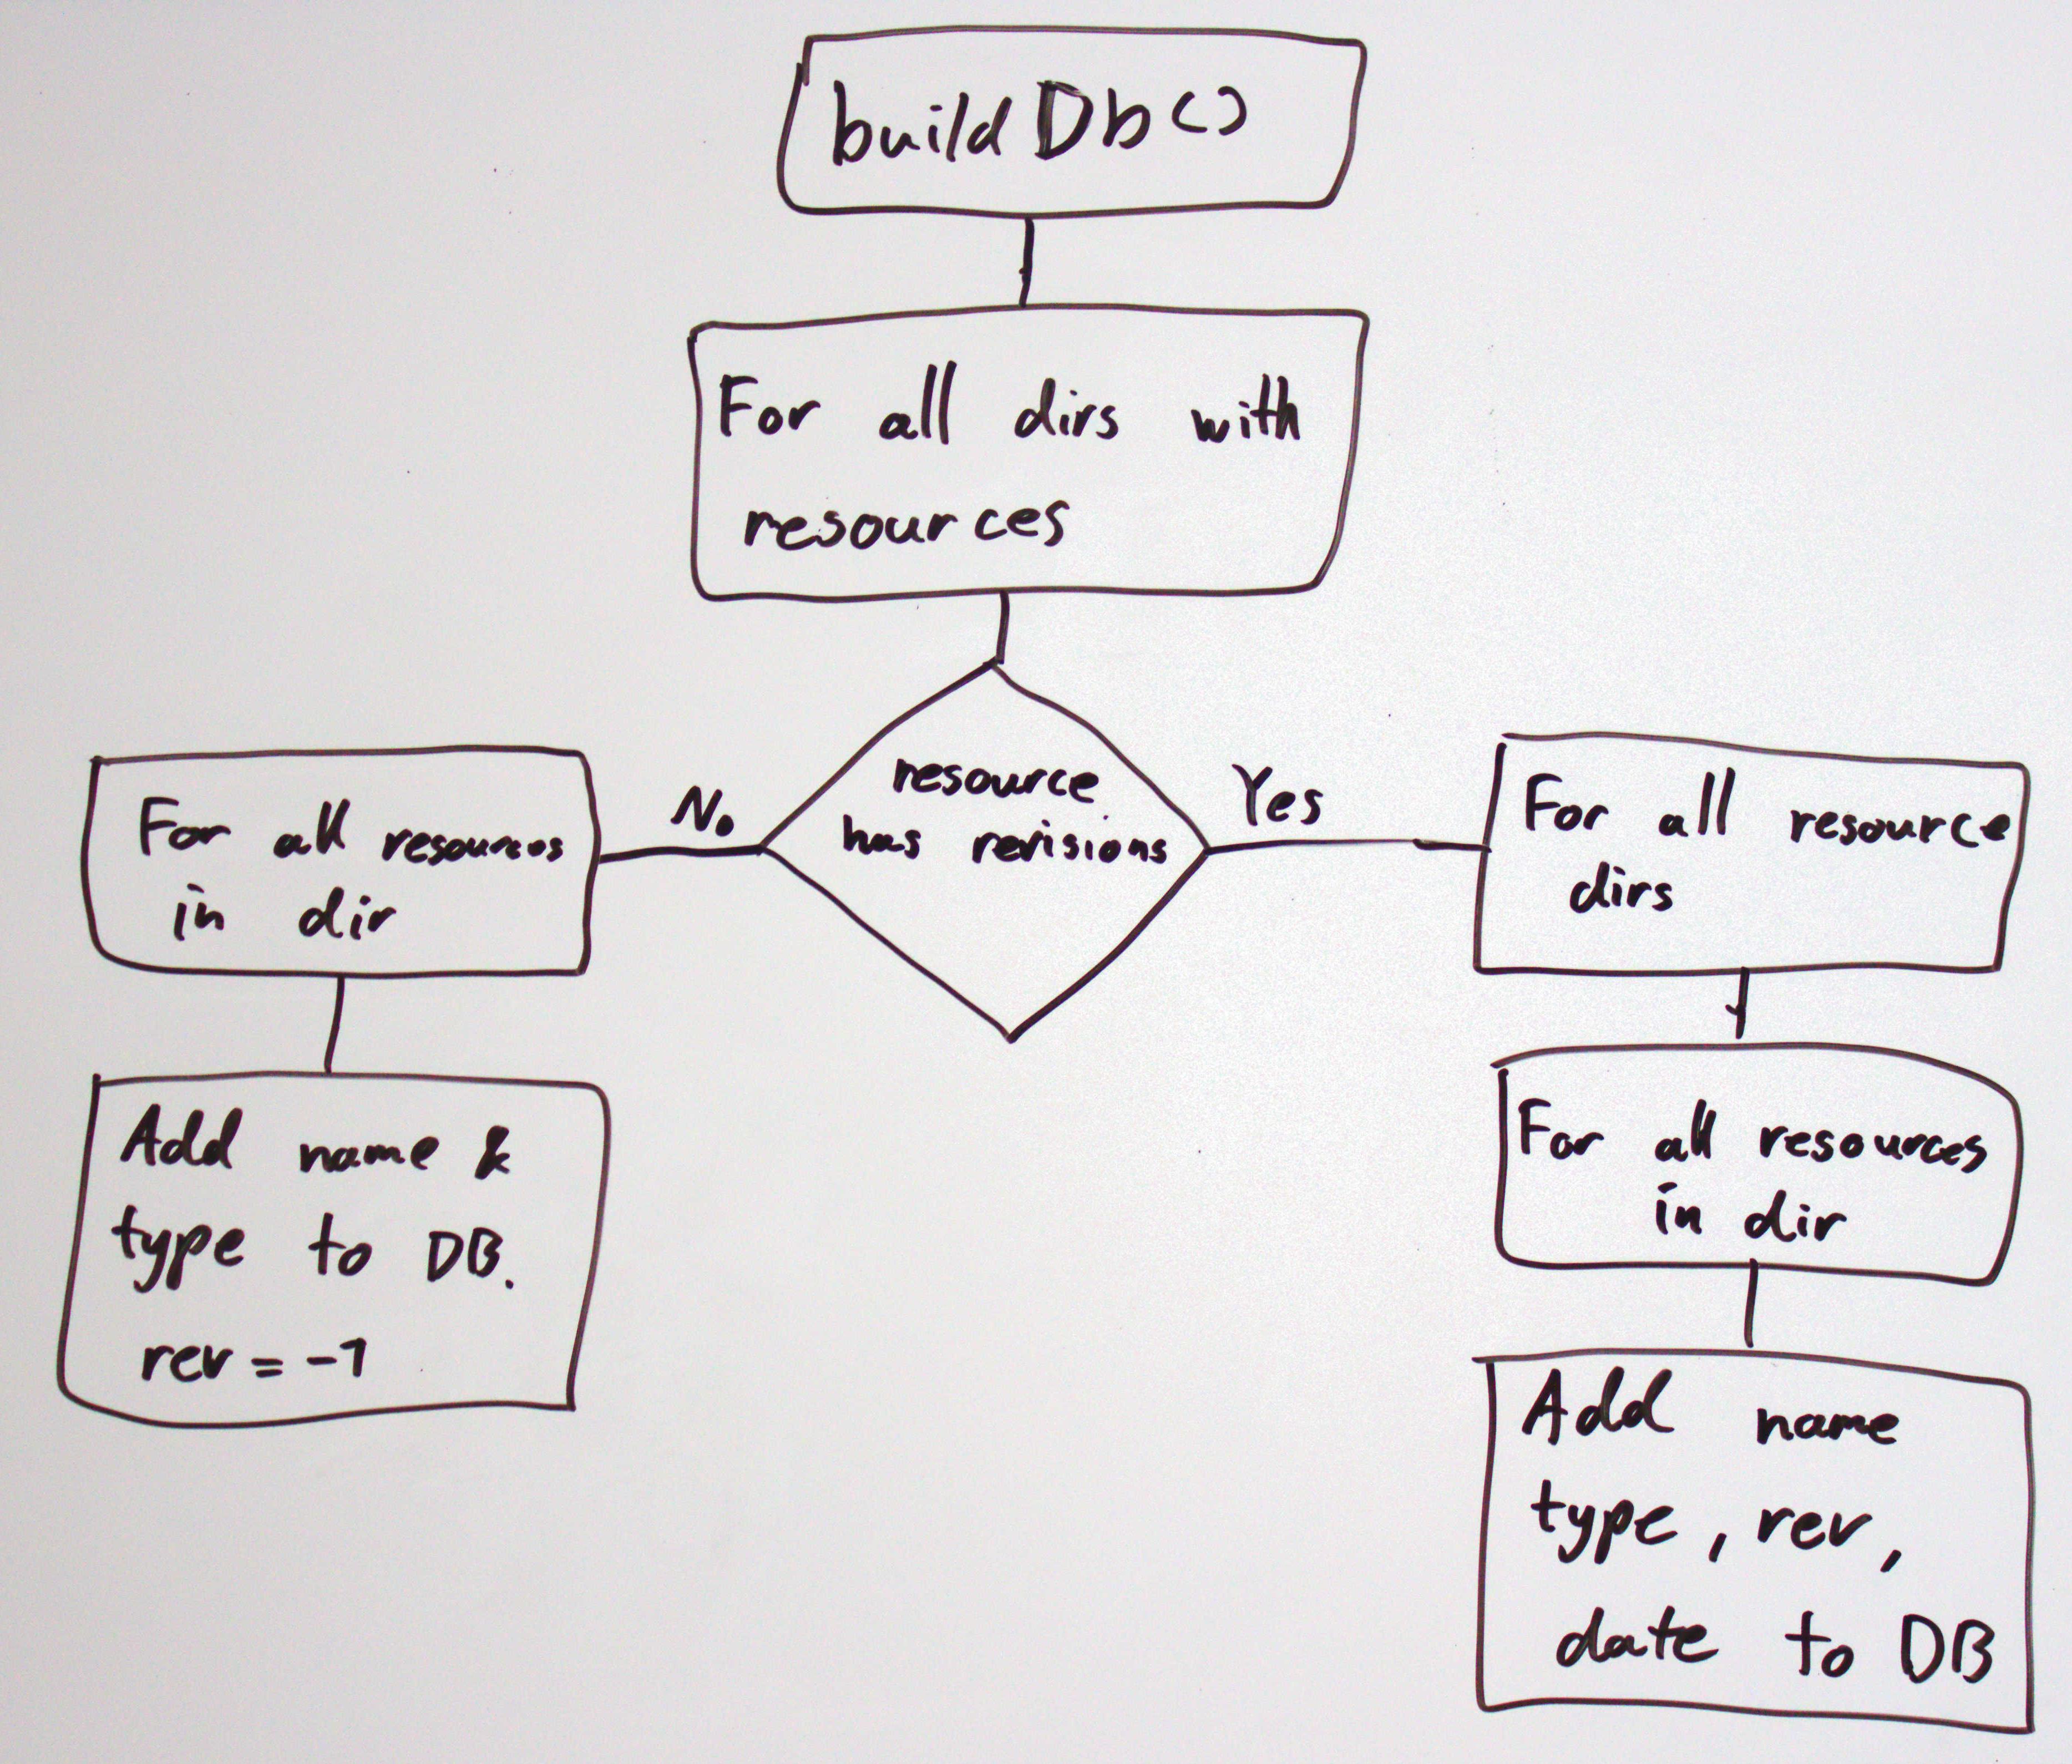 buildDb()
For all dirs with
resources
resource
has revisions
No
Yes
For all resources
in dir
Add name &
type to DB.
rev = -1
For all resource
dirs
For all resources
in dir
Add name
type, rev,
date to DB